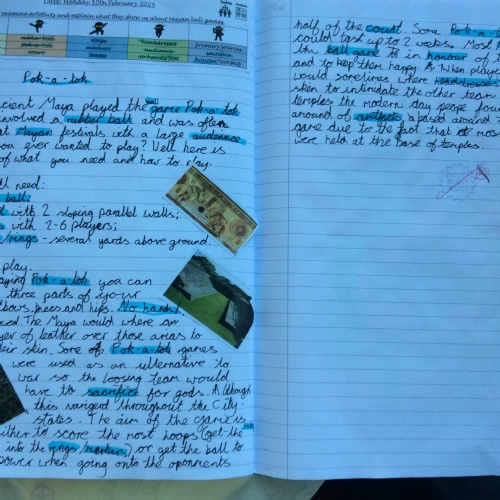 Date: Monday 10th February 2025
examine artefacts and explain what they show us about Mayan ball games
rubber ball
rings
headdress
Pok-a-tok
markers
audience
primary sources
court
sacrifice
honour/worship
Pok-a-tok
cient Maya played the ball game Pok-a-tok
involved a rubber ball and was often
at Mayan festivals with a large audeance
ou ever wanted to play? Well here is
of what you need and how to play.
ll need:
ball;
t with 2 sloping parallel walls;
s with 2-6 players;
/rings - several yards above ground.
play.
aying Pok-a-tok you can
three parts of your
lbows, knees and hips. No hands/
ed. The Maya would where an
yer of leather over those arias to
eir skin. Some of Pok-a-tok games
were used as an ulternative to
war so the loosing team would
have to sacrifice for gods. Although
this varigerd throughout the City-
states. The aim of the game is
either to score the most hoops (get the ball
into the rings/markers) or get the ball to
power when going onto the oponents
half of the court. Some Pok-a-t
could task up to 2 weeks. Most
the ball game to in honour of t
and to keep then happy. When playe
would sorelines where headdresses
skin to intimidate the other team
temples the modern day peope fou
around of artefacts, a pased around
game due to the fact that most
were held at the base of temples.